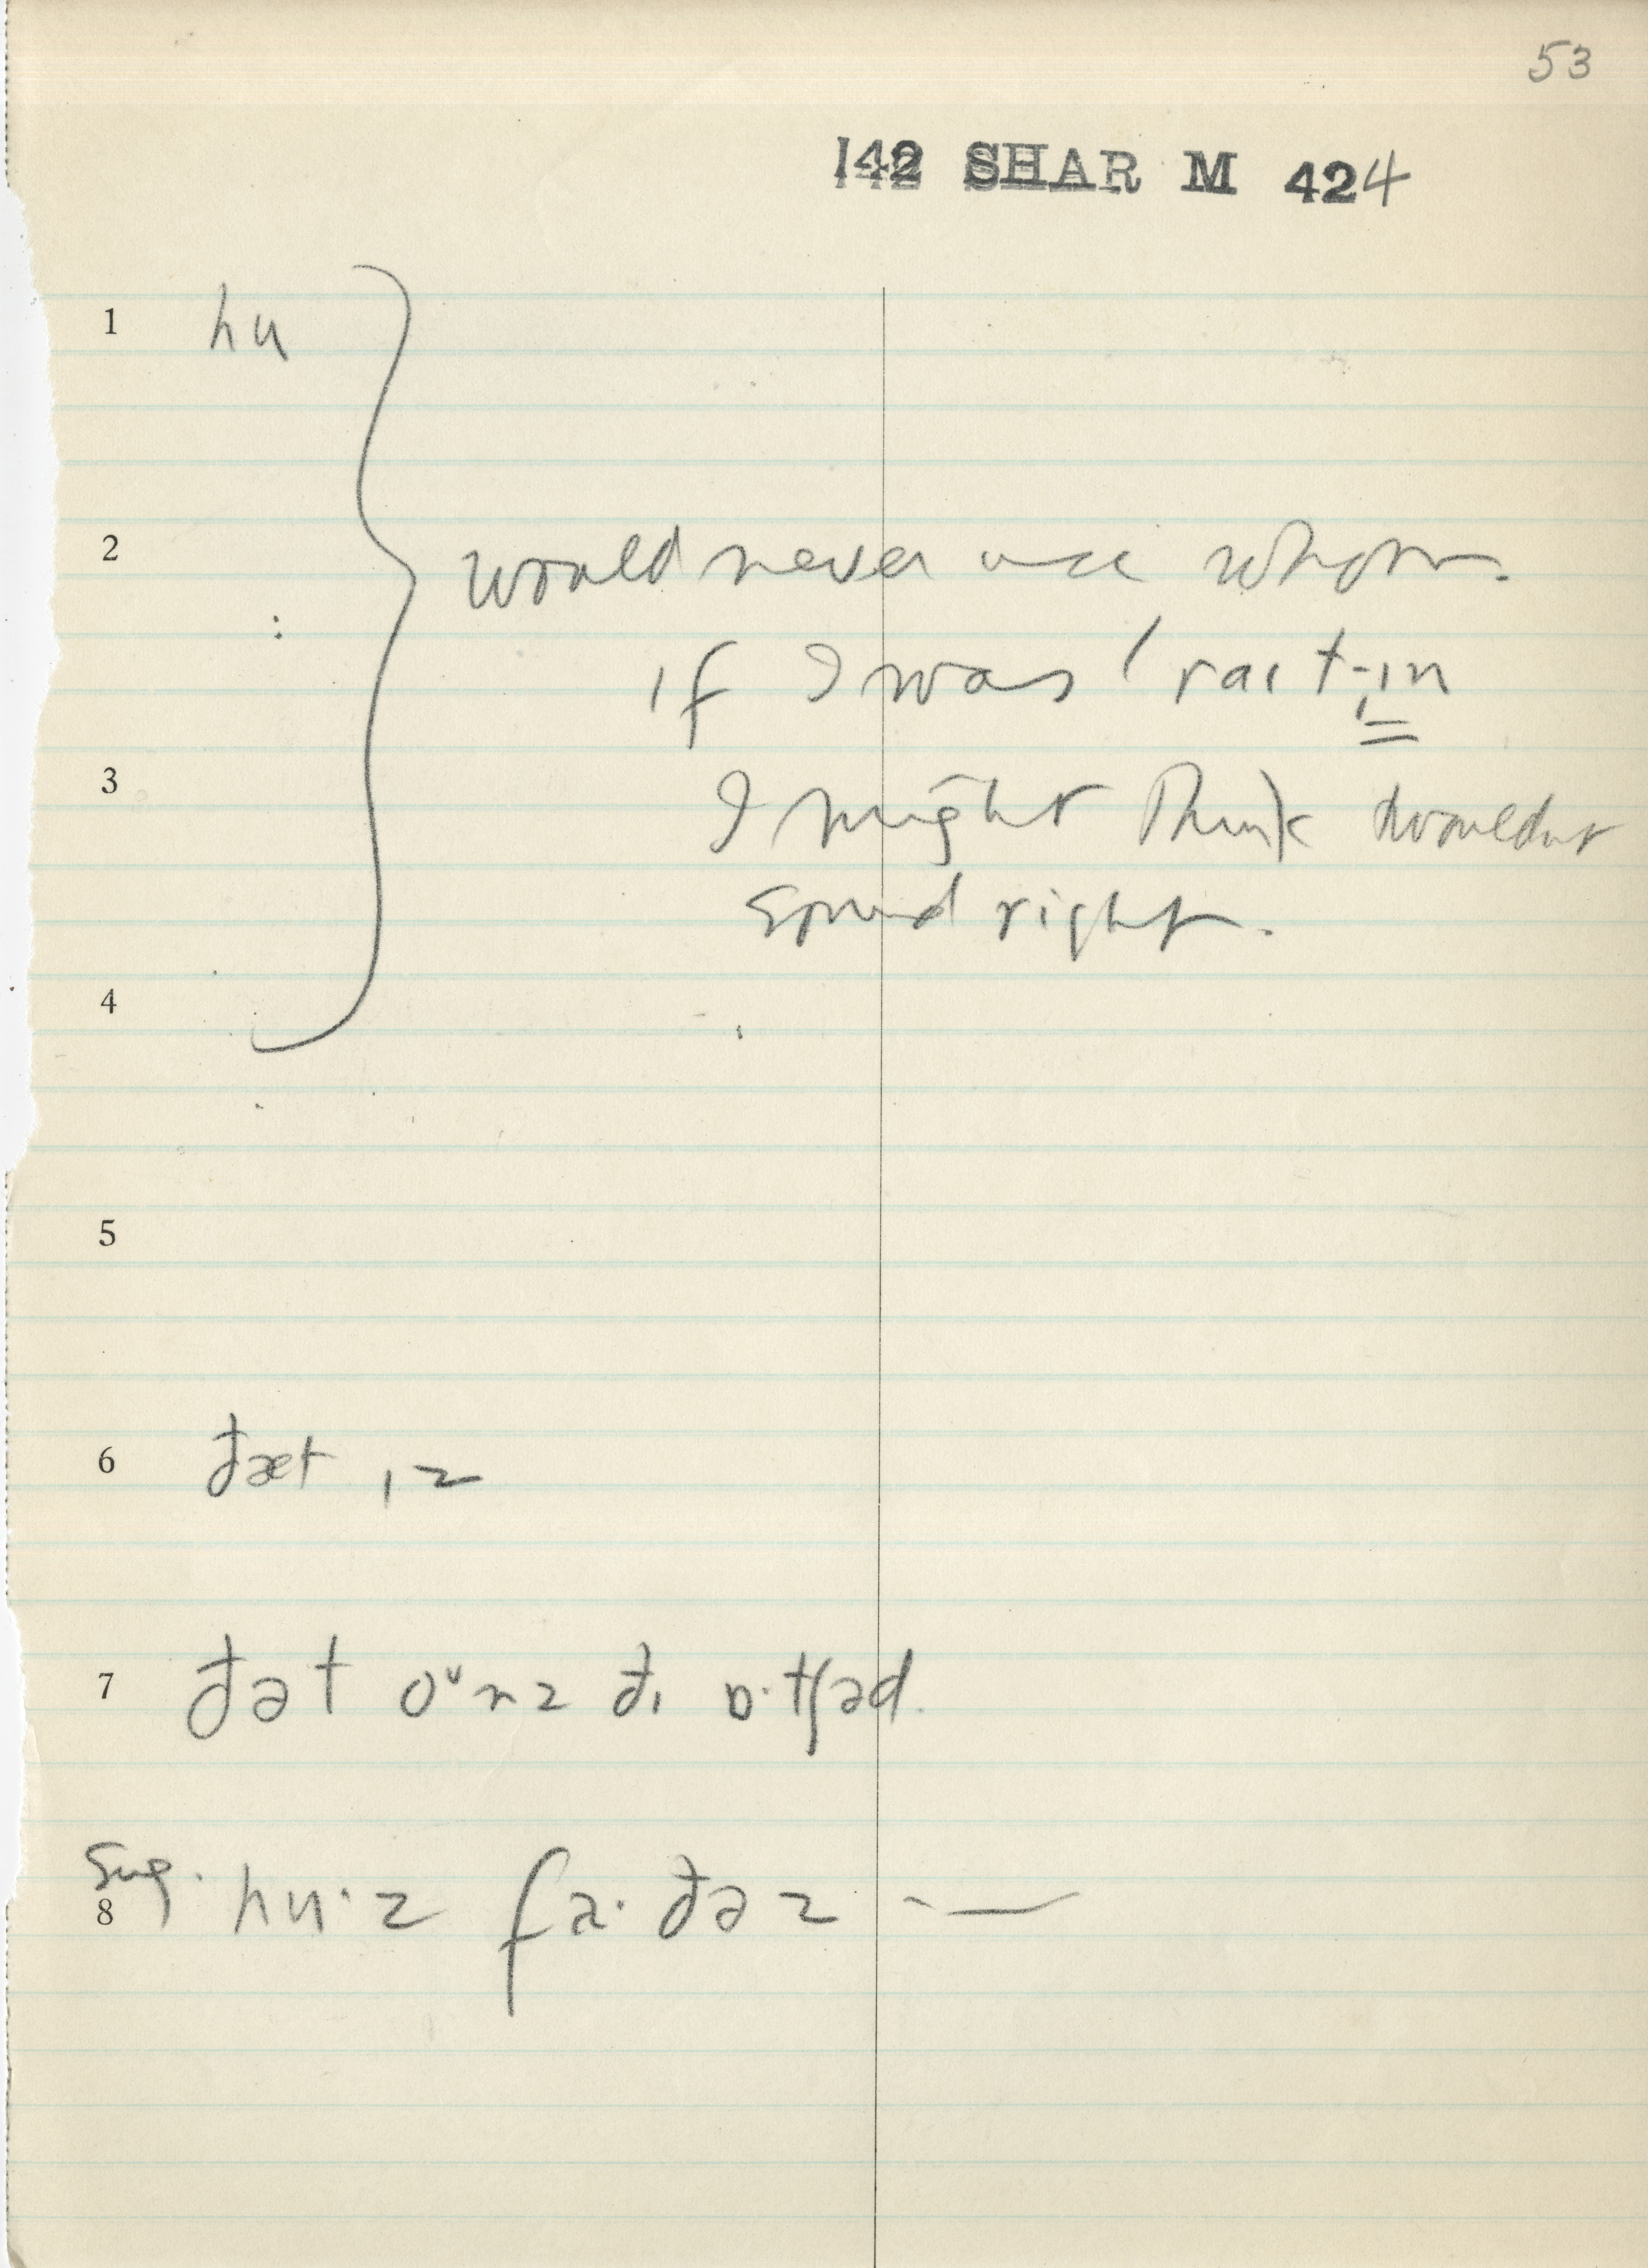 53
142 SHAR M 424
1 hu
2 would never use whom.
if I was ' rait-ɪn
3 I might think
sound right.
4
5
6 đæt ɪz
7 đət oᵘnz đɪ ɒ·tʃəd.
Sug.
8 hu·z fa·đəz —